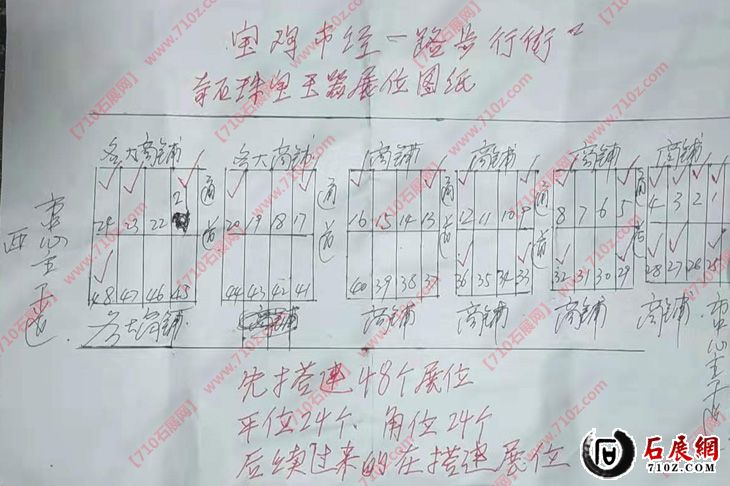 宝鸡市经一路步行街
奇石珠宝玉器展位图纸
各大商铺 各大商铺 商铺 商铺 商铺 商铺
24 23 22 2 通道 20 19 18 17 通道 16 15 14 13 通道 12 11 10 9 通道 8 7 6 5 通道 4 3 2 1
48 47 46 45 44 43 42 41 40 39 38 37 36 35 34 33 32 31 30 29 28 27 26 25
西
各大商铺 商铺 商铺 商铺 商铺 商铺
先搭建48个展位
平位24个 角位24个
后续过来的在搭建展位
石展網
710z.com
【710石展网】www.710z.com